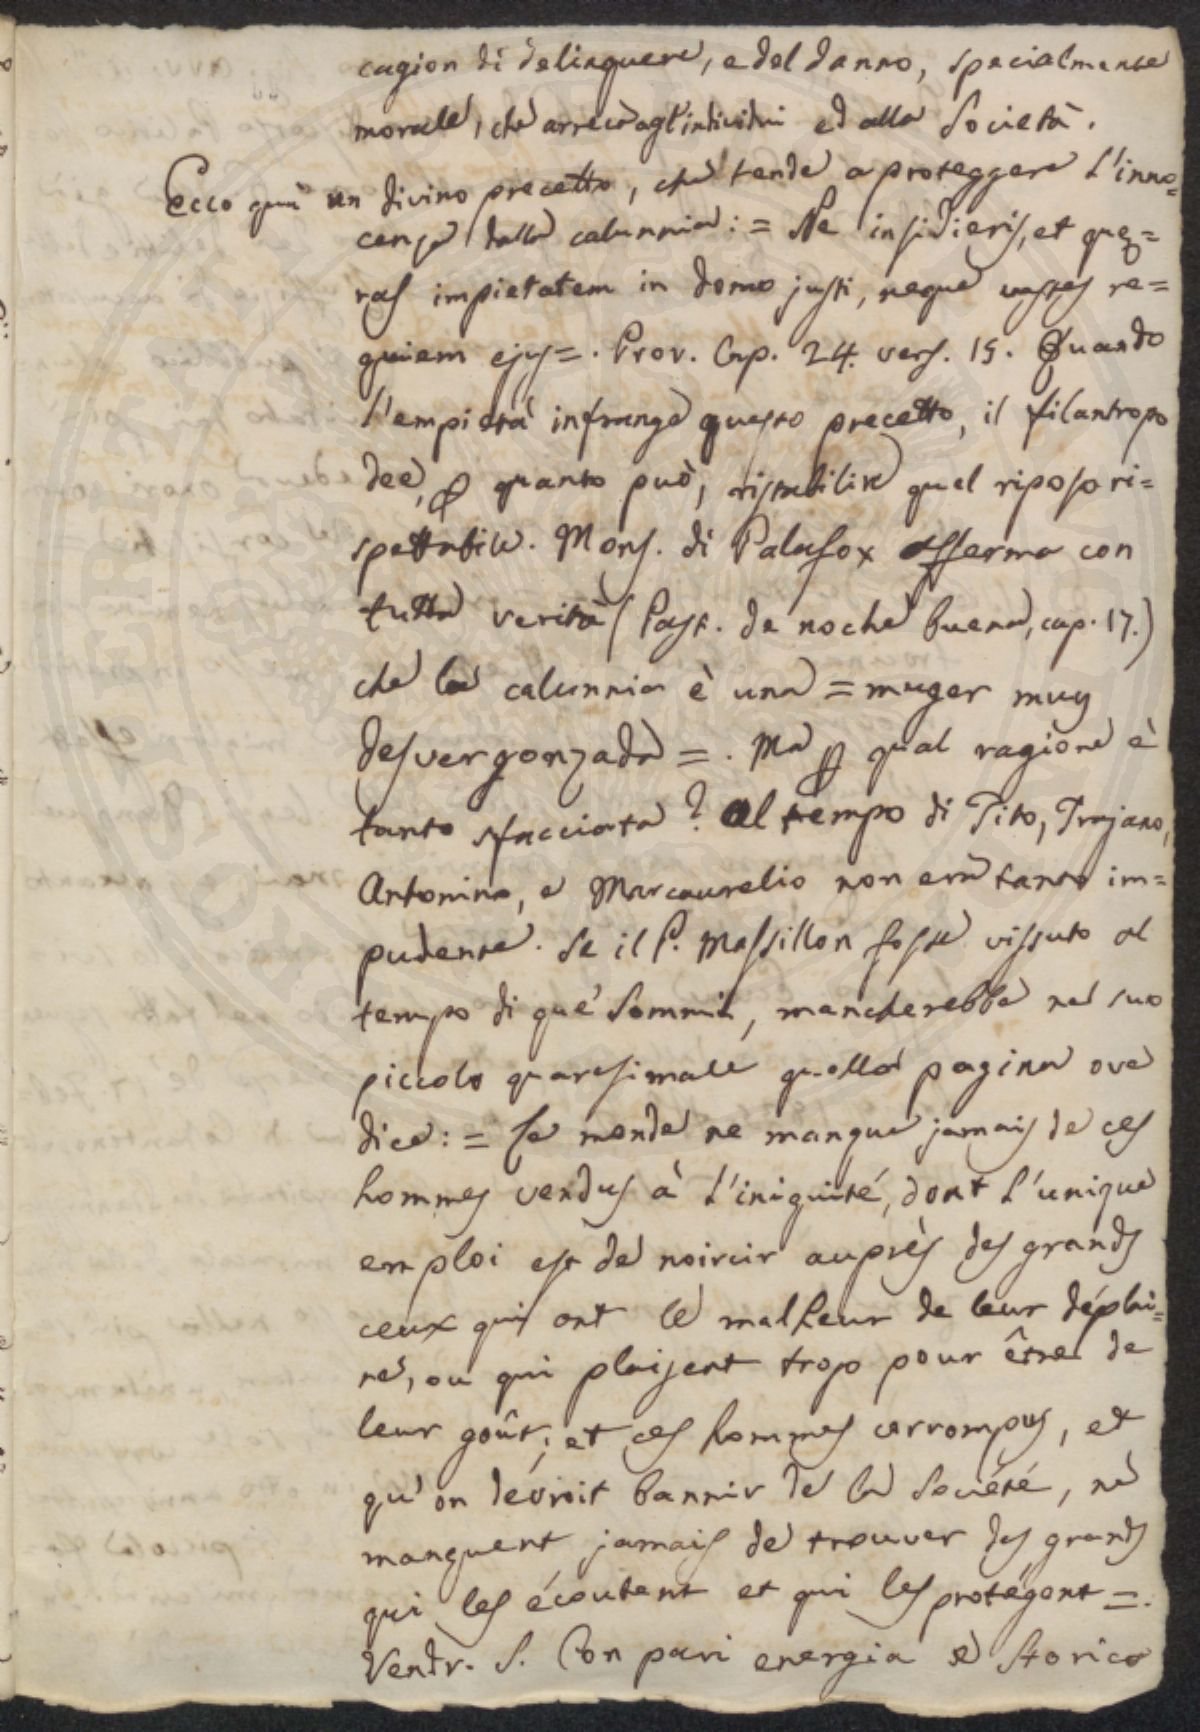 cagion di delinquere, e del danno, specialmente
morale, che arreca agl'individui ed alla Società.
Ecco quì un divino precetto, che tende a proteggere l'inno=
cenza dalla calunnia: = Ne insidieris, et quæ=
ras impietatem in domo justi, neque vastes re=
quiem ejus =. Prov. Cap. 24. vers. 15. Quando
l'empietà infrange questo precetto, il filantropo
dee, quanto può, ristabilire quel riposo ri=
spettabile. Mons. di Palafox afferma con
tutta verità (Past. de noche buena, cap. 17.)
che la calunnia è una = muger muy
desvergonzada =. Ma qual ragione è
tanto sfacciata? Al tempo di Tito, Trajano,
Antonino, e Marcaurelio non era tanto im=
pudente. Se il P. Massillon fosse vissuto al
tempo di que' Sommi, mancherebbe nel suo
piccolo quaresimale quella pagina ove
dice: = Le monde ne manque jamais de ces
hommes vendus à l'iniquité, dont l'unique
emploi est de noircir auprès des grands
ceux qui ont le malheur de leur déplai=
re, ou qui plaisent trop pour être de
leur goût; et ces hommes corrompus, et
qu'on dévroit bannir de la Societé, ne
manquent jamais de trouver des grands
qui les écoutent et qui les protégent =.
Vendr. S. Con pari energia lo Storico